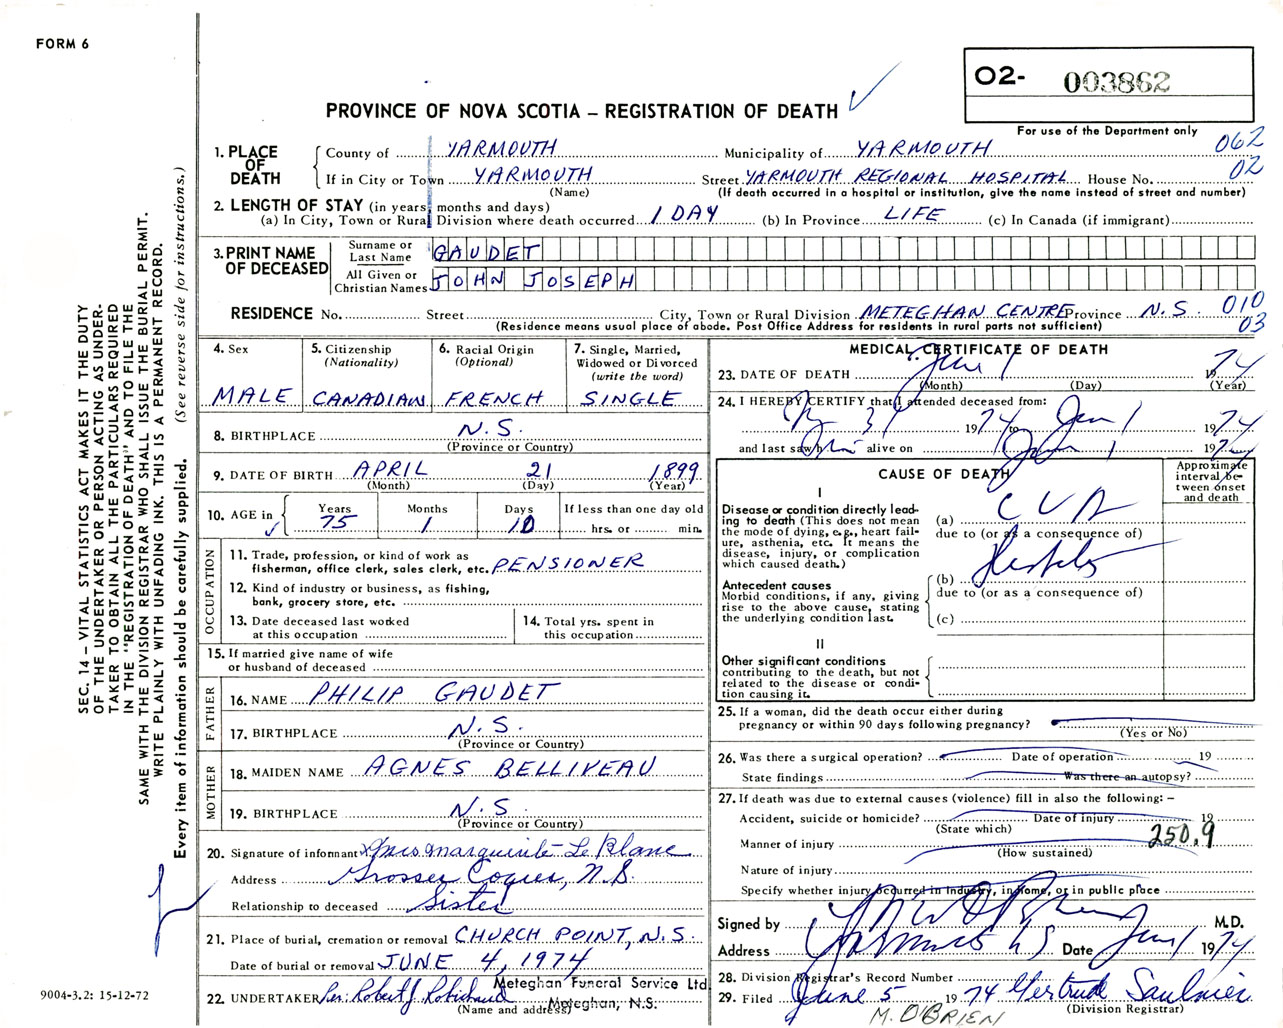 FORM 6
02- 003862
PROVINCE OF NOVA SCOTIA – REGISTRATION OF DEATH
For use of the Department only
062
02
1. PLACE OF DEATH
County of YARMOUTH Municipality of YARMOUTH
If in City or Town YARMOUTH Street YARMOUTH REGIONAL HOSPITAL House No.
(Name) (If death occurred in a hospital or institution, give the name instead of street and number)
2. LENGTH OF STAY (in years, months and days)
(a) In City, Town or Rural Division where death occurred 1 DAY (b) In Province LIFE (c) In Canada (if immigrant)
3. PRINT NAME OF DECEASED
Surname or Last Name GAUDET
All Given or Christian Names JOHN JOSEPH
RESIDENCE No. Street City, Town or Rural Division METEGHAN CENTRE Province N.S. 010
(Residence means usual place of abode. Post Office Address for residents in rural parts not sufficient) 03
4. Sex MALE
5. Citizenship (Nationality) CANADIAN
6. Racial Origin (Optional) FRENCH
7. Single, Married, Widowed or Divorced (write the word) SINGLE
8. BIRTHPLACE N.S.
(Province or Country)
9. DATE OF BIRTH APRIL 21 1899
(Month) (Day) (Year)
10. AGE in Years Months Days If less than one day old
75 1 10 hrs. or min.
OCCUPATION
11. Trade, profession, or kind of work as
fisherman, office clerk, sales clerk, etc. PENSIONER
12. Kind of industry or business, as fishing,
bank, grocery store, etc.
13. Date deceased last worked
at this occupation
14. Total yrs. spent in
this occupation
15. If married give name of wife
or husband of deceased
FATHER
16. NAME PHILIP GAUDET
17. BIRTHPLACE N.S.
(Province or Country)
MOTHER
18. MAIDEN NAME AGNES BELLIVEAU
19. BIRTHPLACE N.S.
(Province or Country)
20. Signature of informant Mrs Marguerite Le Blanc
Address Grosses Coques, N.S.
Relationship to deceased Sister
21. Place of burial, cremation or removal CHURCH POINT, N.S.
Date of burial or removal JUNE 4, 1974
22. UNDERTAKER Per: Robert J. Robichaud Meteghan Funeral Service Ltd.
(Name and address) Meteghan, N.S.
MEDICAL CERTIFICATE OF DEATH
23. DATE OF DEATH June 1 1974
(Month) (Day) (Year)
24. I HEREBY CERTIFY that I attended deceased from:
31 1974 to June 1 1974
and last saw him alive on June 1 1974
CAUSE OF DEATH
Approximate interval between onset and death
I
Disease or condition directly leading to death (This does not mean the mode of dying, e.g., heart failure, asthenia, etc. It means the disease, injury, or complication which caused death.)
(a) CVA
due to (or as a consequence of)
Antecedent causes
Morbid conditions, if any, giving rise to the above cause, stating the underlying condition last.
(b)
due to (or as a consequence of)
(c)
II
Other significant conditions
contributing to the death, but not related to the disease or condition causing it.
25. If a woman, did the death occur either during
pregnancy or within 90 days following pregnancy?
(Yes or No)
26. Was there a surgical operation? Date of operation 19
State findings Was there an autopsy?
27. If death was due to external causes (violence) fill in also the following: –
Accident, suicide or homicide? Date of injury 19
(State which)
250.9
Manner of injury
(How sustained)
Nature of injury
Specify whether injury occurred in industry, in home, or in public place
Signed by M.D.
Address Yarmouth NS Date June 1 1974
28. Division Registrar's Record Number
29. Filed June 5 1974 Gertrude Saulnier
(Division Registrar)
M. O'BRIEN
SEC. 14 – VITAL STATISTICS ACT MAKES IT THE DUTY
OF THE UNDERTAKER OR PERSON ACTING AS UNDER-
TAKER TO OBTAIN ALL THE PARTICULARS REQUIRED
IN THE "REGISTRATION OF DEATH" AND TO FILE THE
SAME WITH THE DIVISION REGISTRAR WHO SHALL ISSUE THE BURIAL PERMIT.
WRITE PLAINLY WITH UNFADING INK. THIS IS A PERMANENT RECORD.
Every item of information should be carefully supplied. (See reverse side for instructions.)
9004-3.2: 15-12-72